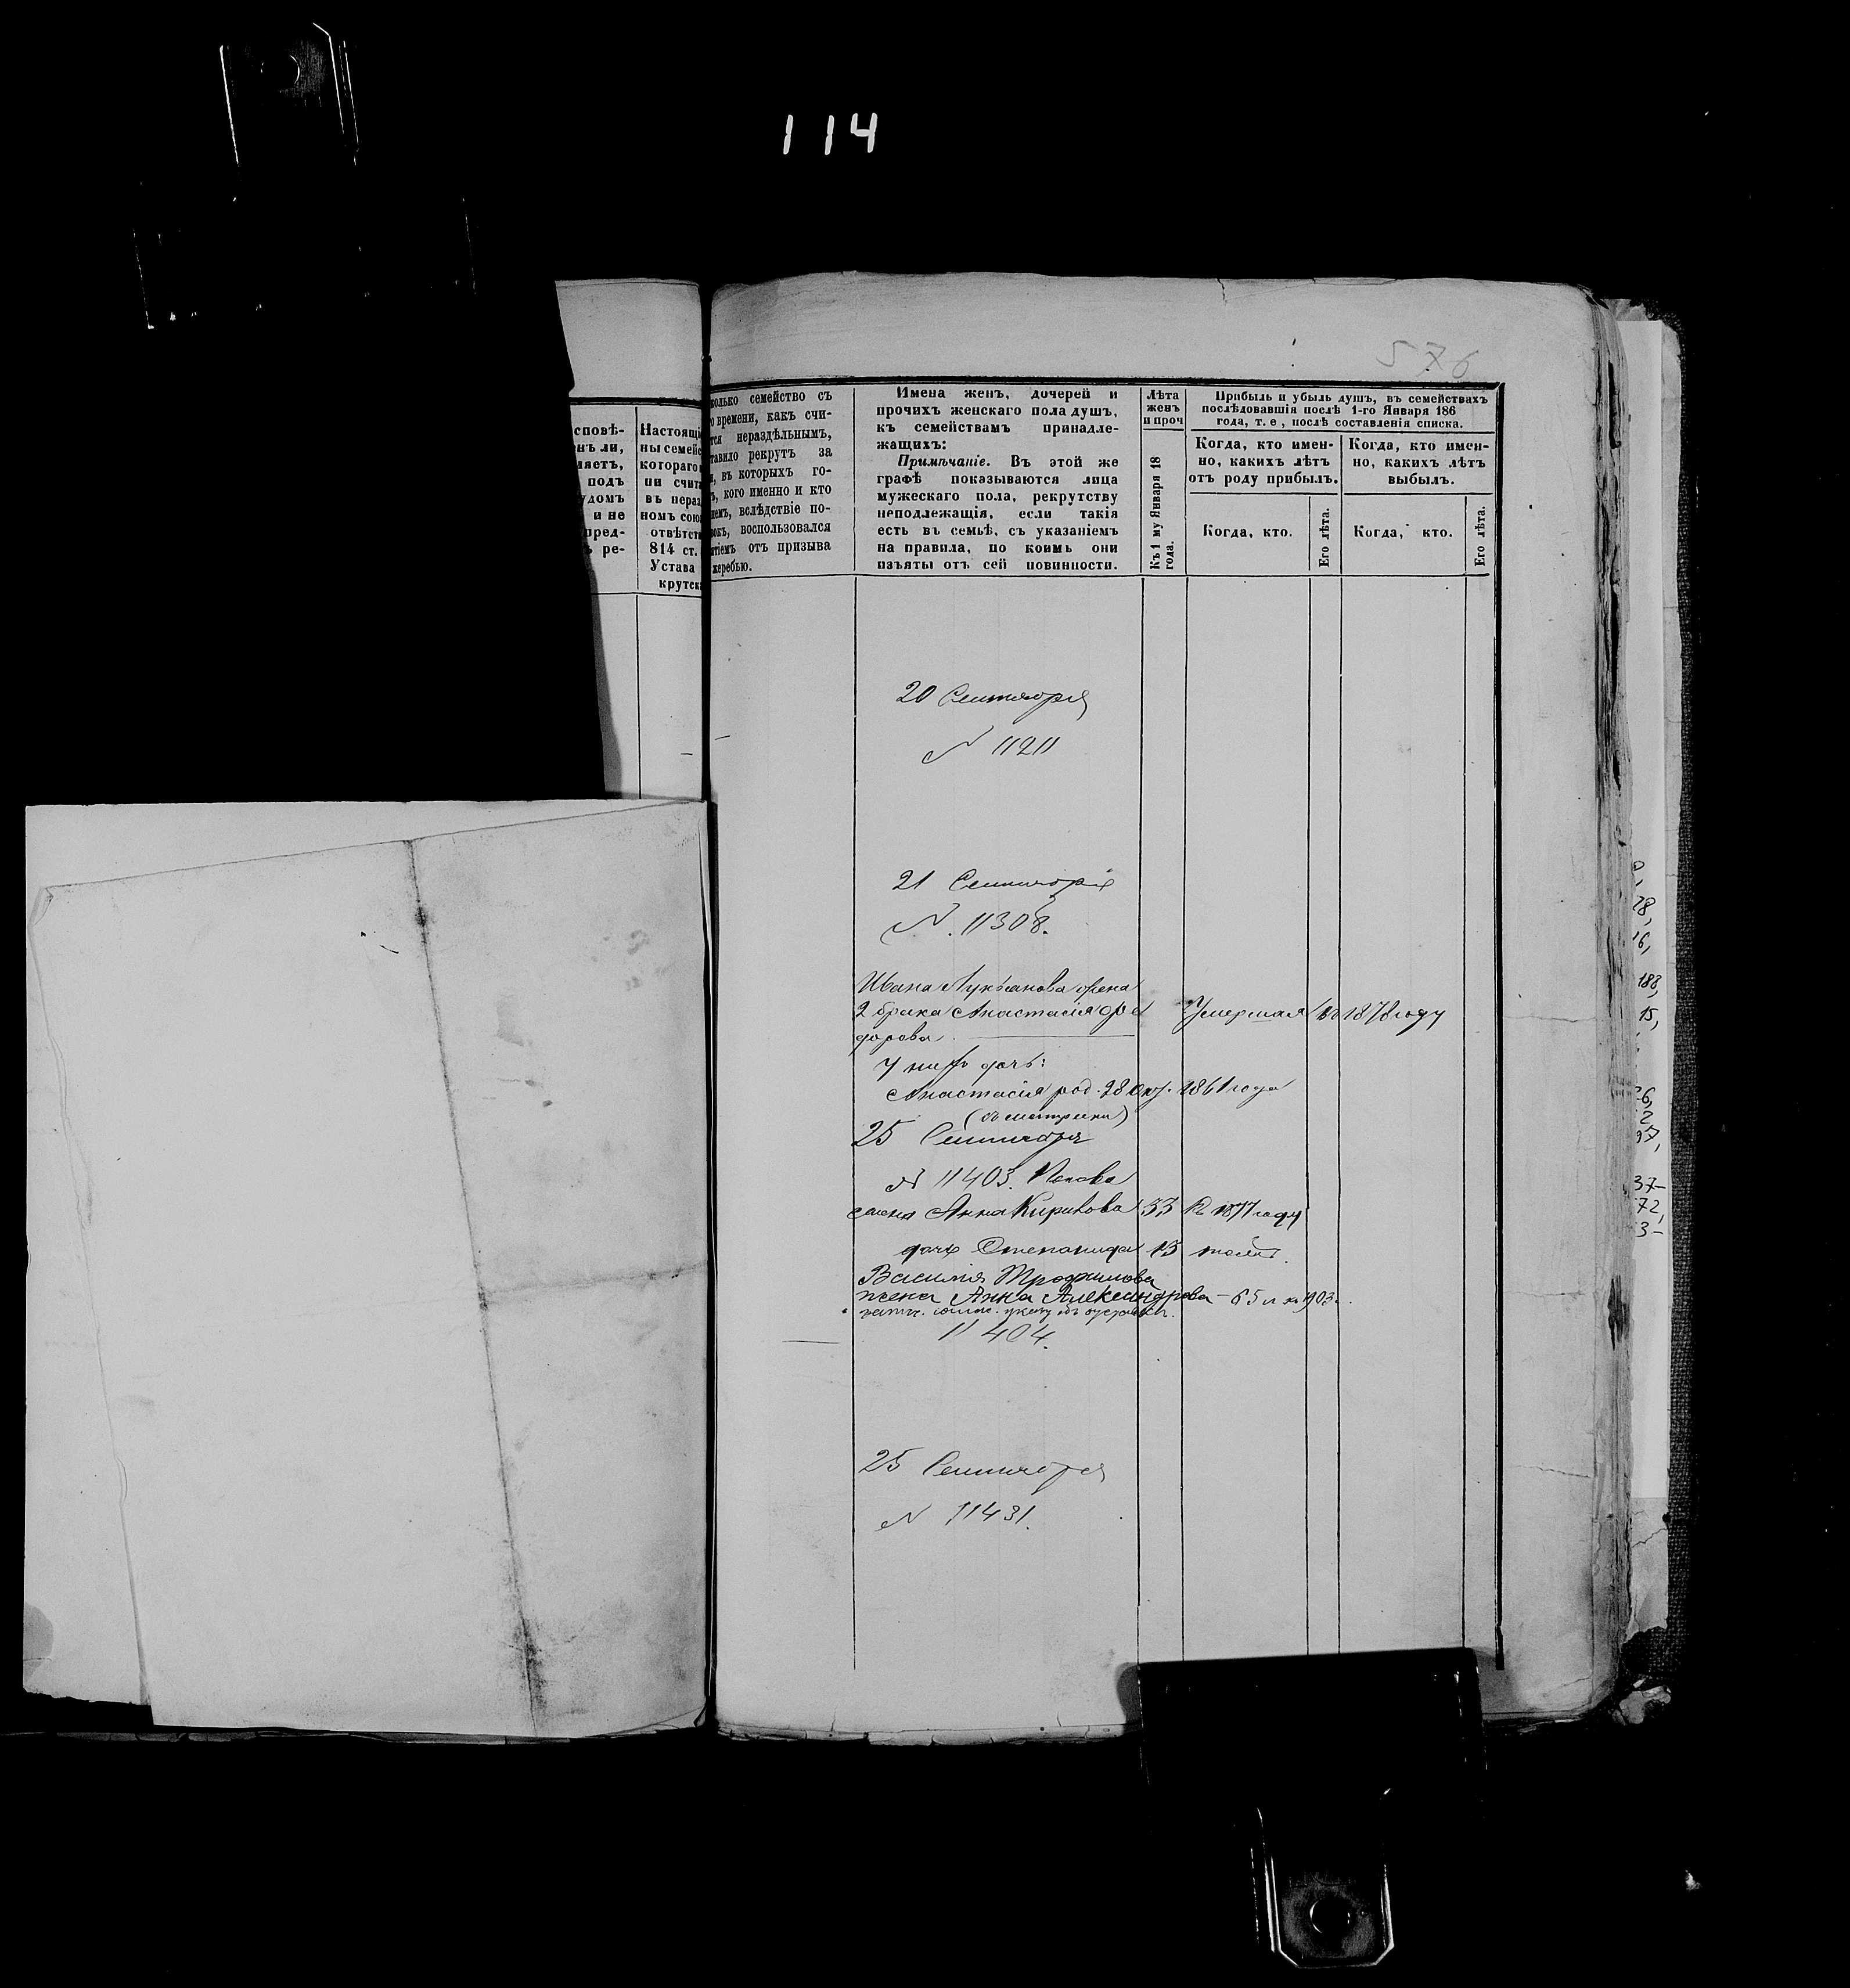 114
576
сповѣ-
нъ ли,
ляетъ,
подъ
удомъ
и не
пред-
ъ ре-
Настоящі
ны семейс
котораго
ни счита
въ нераз
номъ союз
отвѣтст
814 ст.
Устава
крутск
колько семейство съ
о времени, какъ счи-
тся нераздѣльнымъ,
тавило рекрутъ за
и, въ которыхъ го-
ъ, кого именно и кто
немъ, вслѣдствіе по-
вокъ, воспользовался
ятіемъ отъ призыва
жеребью.
Имена женъ, дочерей и
прочихъ женскаго пола душъ,
къ семействамъ принадле-
жащихъ:
Примѣчаніе. Въ этой же
графѣ показываются лица
мужескаго пола, рекрутству
неподлежащія, если такія
есть въ семьѣ, съ указаніемъ
на правила, по коимъ они
изъяты отъ сей повинности.
Лѣта
женъ
и проч
Къ 1 му Января 18
года.
Прибыль и убыль душъ, въ семействахъ
послѣдовавшія послѣ 1-го Января 186
года, т. е, послѣ составленія списка.
Когда, кто имен-
но, какихъ лѣтъ
отъ роду прибылъ.
Когда, кто имен-
но, какихъ лѣтъ
выбылъ.
Когда, кто.
Его лѣта.
Когда, кто.
Его лѣта.
20 Сентября
N 11211
21 Сентября
N. 11308.
Ивана Лукьянова жена
2 брака Анастасія Ѳео
дорова Умершая въ 1878 году
у нихъ дочь:
Анастасія род. 28 Окт. 1861 года
25 Сентября
N 11403.
жена Анна Кирилова 33 Къ 1877 году
дочь Степанида 13 тожъ
Василія Трофимова
жена Анна Александрова - 65 л къ 1903 г.
11404.
25 Сентября
N 11431.